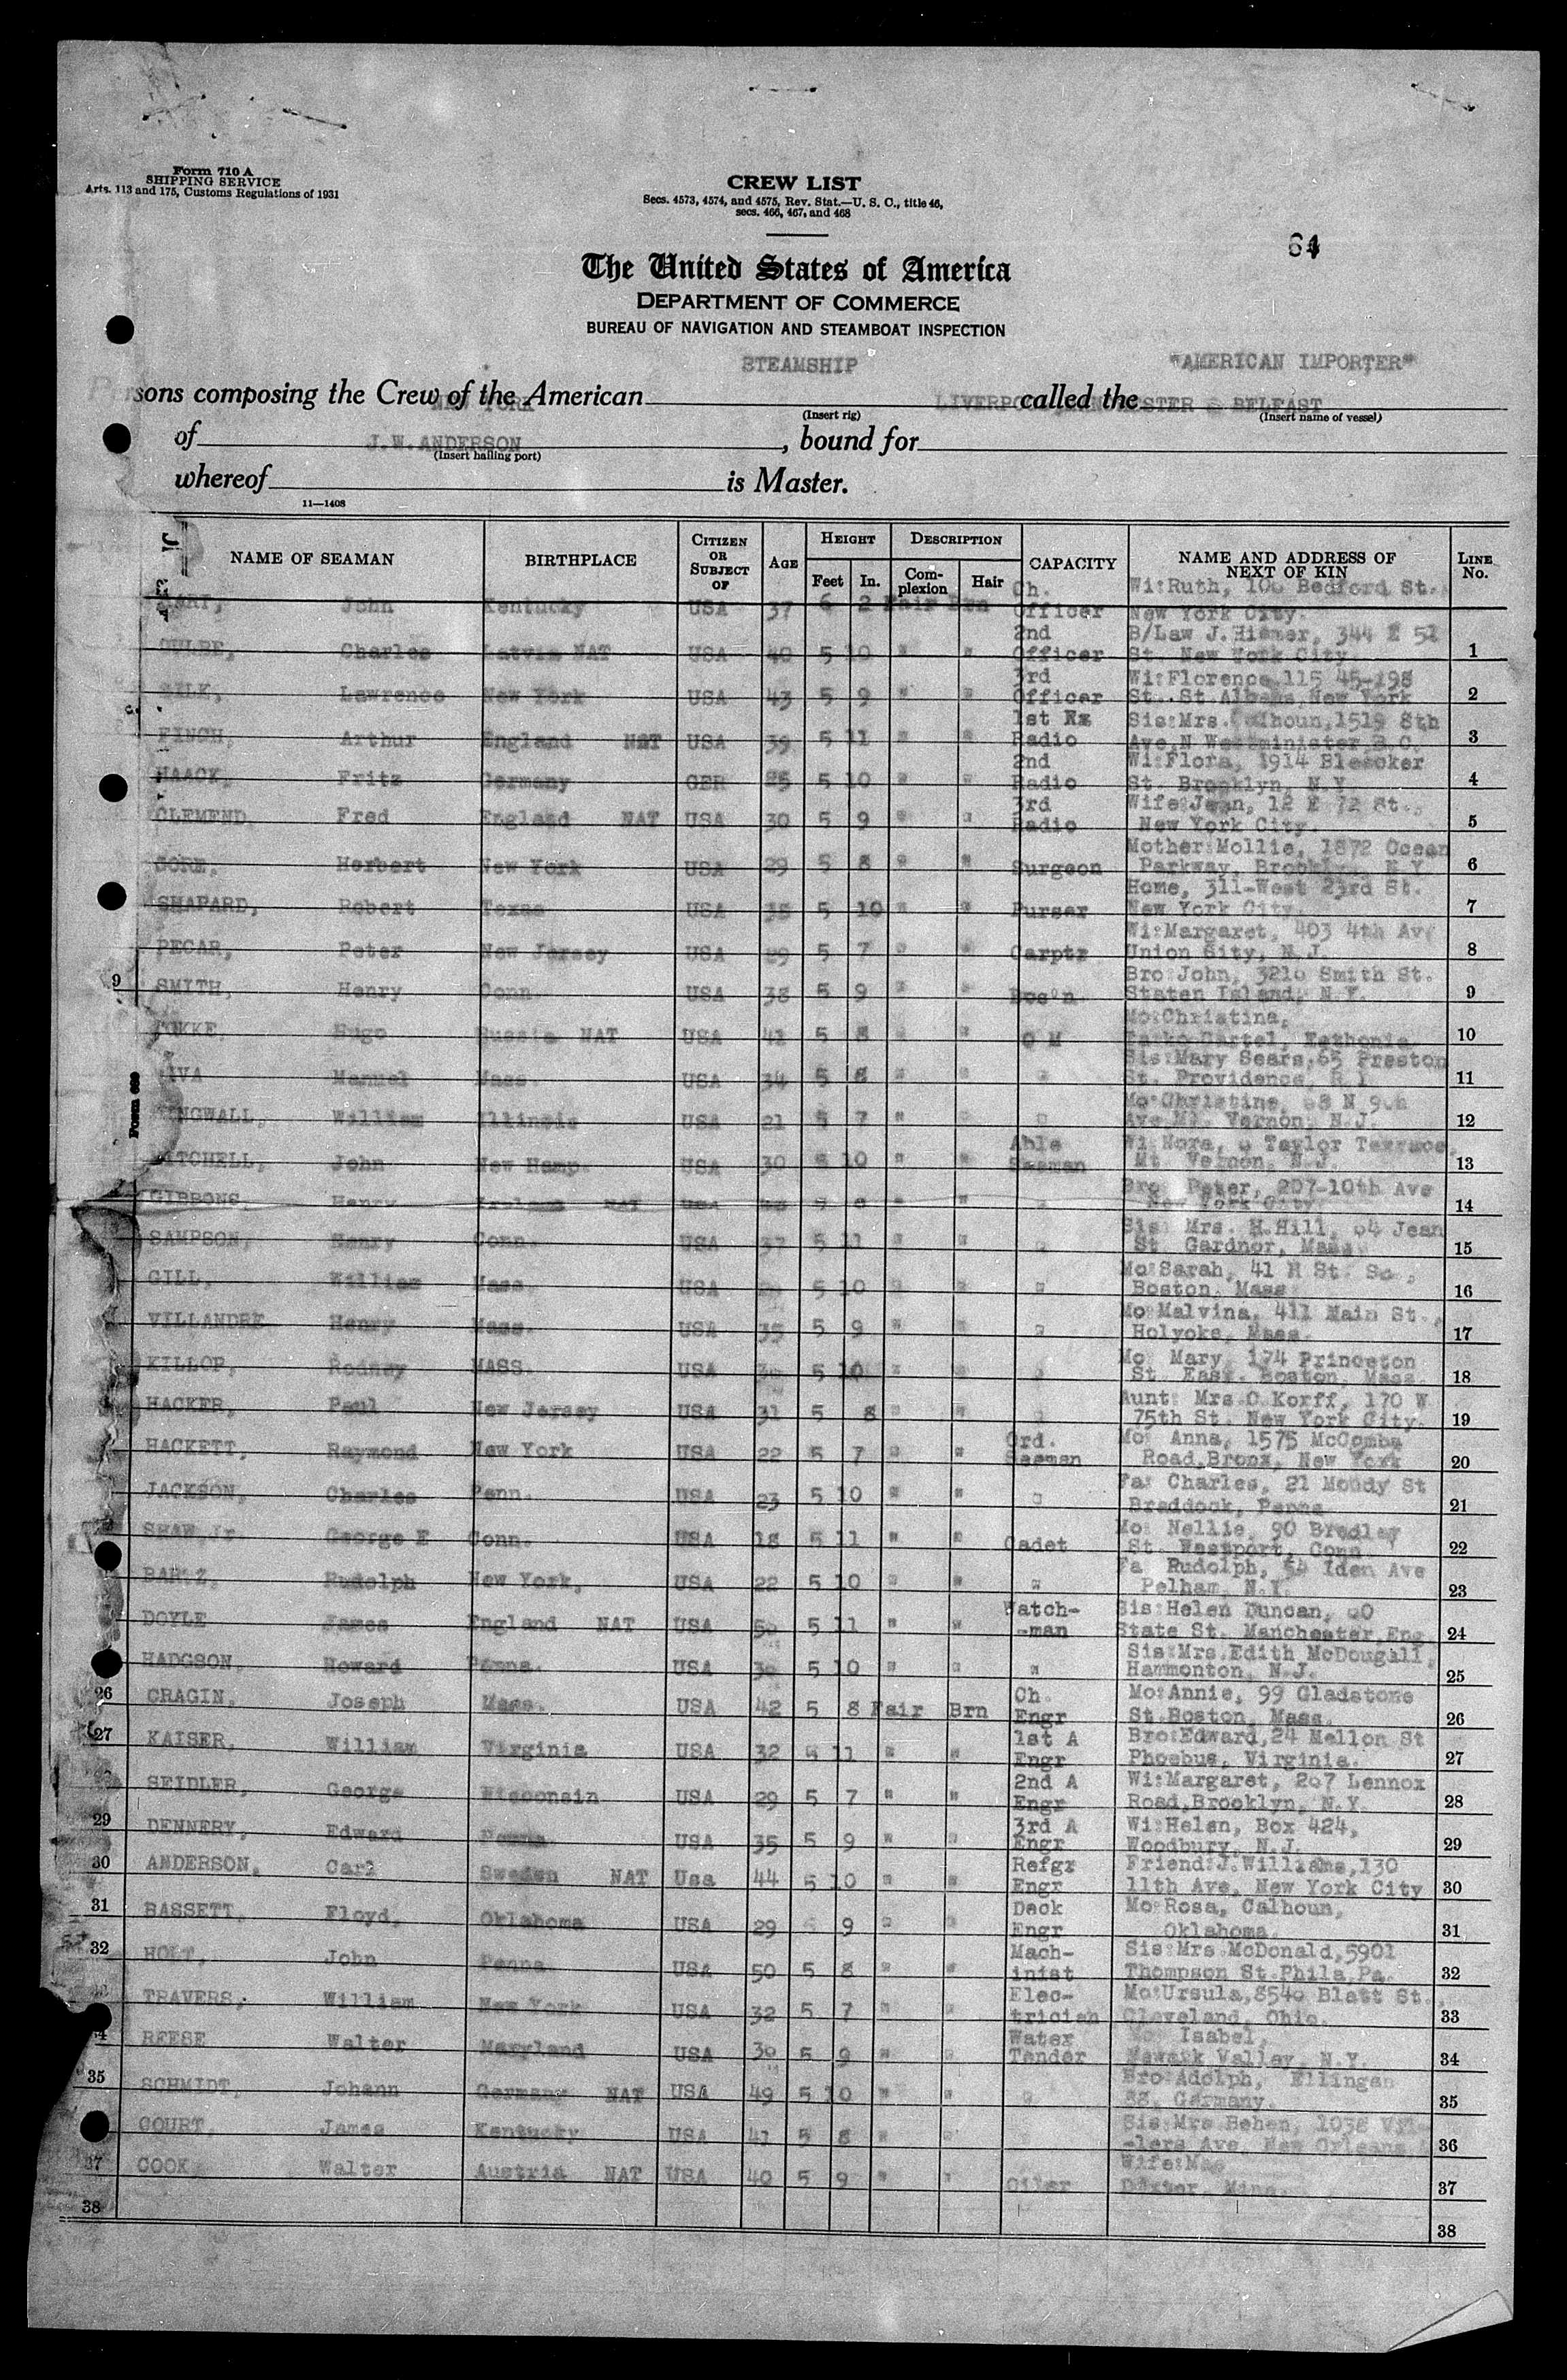 Form 710 A
SHIPPING SERVICE
Arts. 113 and 175, Customs Regulations of 1931
CREW LIST
Secs. 4573, 4574, and 4575, Rev. Stat.—U. S. C., title 46,
secs. 466, 467, and 468
64
The United States of America
DEPARTMENT OF COMMERCE
BUREAU OF NAVIGATION AND STEAMBOAT INSPECTION
STEAMSHIP "AMERICAN IMPORTER"
Persons composing the Crew of the American called the
NEW YORK BELFAST
(Insert rig) (Insert name of vessel)
of , bound for
J.W.ANDERSON
(Insert hailing port)
whereof is Master.
11—1408
NAME OF SEAMAN BIRTHPLACE CITIZEN OR SUBJECT OF AGE HEIGHT Feet In. DESCRIPTION Complexion Hair CAPACITY NAME AND ADDRESS OF NEXT OF KIN LINE No.
John Kentucky USA 37 6 2 Fair Brn Ch. Officer Wi:Ruth, 106 Bedford St. New York City.
Charles Latvia NAT USA 40 5 10 " " 2nd Officer B/Law J. 344 E 52 St. New York City. 1
Lawrence New York USA 43 5 9 " " 3rd Officer Wi:Florence,115 45-198 St. St Albans,New York 2
FINCH, Arthur England NAT USA 39 5 11 " " 1st Radio Sis:Mrs. 1519 8th Ave,N Westminister,B.C. 3
HAACK, Fritz Germany GER 25 5 10 " " 2nd Radio Wi:Flora, 1914 Bleecker St. Brooklyn, N.Y. 4
CLEMEND, Fred England NAT USA 30 5 9 " " 3rd Radio Wife:Jean, 12 E 72 St., New York City. 5
GORE, Herbert New York USA 29 5 8 " " Surgeon Mother:Mollie, 1872 Ocean Parkway, Brooklyn, N.Y. 6
SHAPARD, Robert Texas USA 38 5 10 " " Purser Home, 311-West 23rd St. New York City. 7
PECAR, Peter New Jersey USA 29 5 7 " " Carptr Wi:Margaret, 403 4th Ave Union City, N.J. 8
9 SMITH, Henry Conn. USA 38 5 9 " " Bos'n. Bro:John, 3210 Smith St. Staten Island, N.Y. 9
Hugo Russia NAT USA 41 5 8 " " Q M Mo:Christina, 10
Manuel Mass. USA 34 5 8 " " " Sis:Mary Sears,65 Preston St. Providence, R I. 11
William Illinois USA 21 5 7 " " " Mo:Christine, Ave Mt. Vernon, N.J. 12
MITCHELL, John New Hamp. USA 30 5 10 " " Able Seaman Wi:Nora, Taylor Terrace, Mt. Vernon, N.J. 13
GIBBONS, Henry Ireland NAT USA 5 8 " " " Bro: Peter, 207-10th Ave New York City. 14
SAMPSON, Henry Conn. USA 37 5 11 " " " Sis: Mrs. H.Hill, 64 Jean St. Gardner, Mass. 15
GILL, William Mass. USA 5 10 " " " Mo:Sarah, 41 H St. So., Boston, Mass. 16
VILLANDRE Henry Mass. USA 35 5 9 " " " Mo:Malvina, 411 Main St., Holyoke, Mass. 17
KILLOP, Rodney MASS. USA 5 10 " " " Mo: Mary, 174 Princeton St. East. Boston, Mass. 18
HACKER, Paul New Jersey USA 31 5 8 " " " Aunt: Mrs O Korff, 170 W 75th St. New York City. 19
HACKETT, Raymond New York USA 22 5 7 " " Ord. Seaman Mo: Anna, 1575 McCombs Road,Bronx, New York 20
JACKSON, Charles Penn. USA 23 5 10 " " " Fa: Charles, 21 Moody St Braddock, Penna 21
SHAW,Jr. George E Conn. USA 18 5 11 " " Cadet Mo: Nellie, 90 Bradley St. Westport, Conn. 22
BARTZ, Rudolph New York, USA 22 5 10 " " " Fa Rudolph, 54 Iden Ave Pelham, N.Y. 23
DOYLE James England NAT USA 50 5 11 " " Watch-man Sis:Helen Duncan, 60 State St. Manchester,Eng 24
HADGSON, Howard Penna. USA 5 10 " " " Sis:Mrs.Edith McDougall, Hammonton, N.J. 25
26 CRAGIN, Joseph Mass. USA 42 5 8 Fair Brn Ch. Engr Mo:Annie, 99 Gladstone St.Boston, Mass. 26
27 KAISER, William Virginia USA 32 5 11 " " 1st A Engr Bro:Edward,24 Mellon St Phoebus, Virginia. 27
SEIDLER, George Wisconsin USA 29 5 7 " " 2nd A Engr Wi:Margaret, 267 Lennox Road,Brooklyn, N.Y. 28
29 DENNERY, Edward Penna USA 35 5 9 " " 3rd A Engr Wi:Helen, Box 424, Woodbury, N.J. 29
30 ANDERSON, Carl Sweden NAT Usa 44 5 10 " " Refgr Engr Friend:J.Williams,130 11th Ave, New York City 30
31 BASSETT, Floyd, Oklahoma USA 29 9 " " Deck Engr Mo:Rosa, Calhoun, Oklahoma. 31
32 HOLT, John Penna USA 50 5 8 " " Mach-inist Sis:Mrs McDonald,5901 Thompson St.Phila,Pa. 32
TRAVERS, William New York USA 32 5 7 " " Elec-trician Mo:Ursula,8540 Blatt St., Cleveland, Ohio. 33
REESE Walter Maryland USA 30 5 9 " " Water Tender Mo: Isabel, Newark Valley, N.Y. 34
35 SCHMIDT, Johann Germany NAT USA 49 5 10 " " " Bro:Adolph, Ellingen Germany. 35
COURT, James Kentucky USA 41 5 8 " " Sis:Mrs Behen, 1038 -lers Ave, New Orleans 36
37 COOK Walter Austria NAT USA 40 5 9 " " Oiler Wife:Mae 37
38 38
Form 689